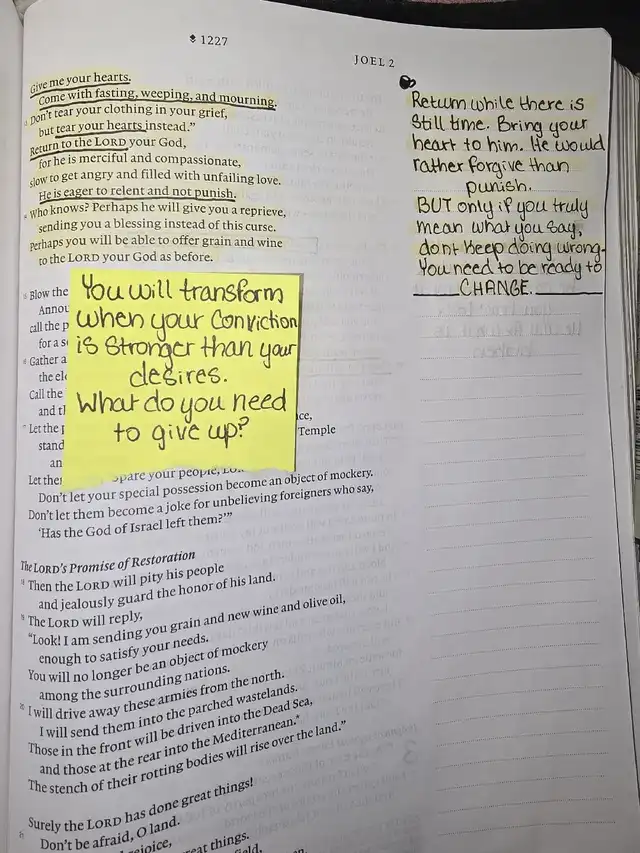 1227
JOEL 2
Give me your hearts.
Come with fasting, weeping, and mourning.
13 Don't tear your clothing in your grief,
but tear your hearts instead."
Return to the LORD your God,
for he is merciful and compassionate,
slow to get angry and filled with unfailing love.
He is eager to relent and not punish.
14 Who knows? Perhaps he will give you a reprieve,
sending you a blessing instead of this curse.
Perhaps you will be able to offer grain and wine
to the LORD your God as before.
15 Blow the
Annou
call the p
for a s
16 Gather a
the el
Call the
and t
17 Let the p
stand
an
ace,
Temple
Let the
Spare your people,
Don't let your special possession become an object of mockery.
Don't let them become a joke for unbelieving foreigners who say,
'Has the God of Israel left them?'"
The LORD's Promise of Restoration
18 Then the LORD will pity his people
and jealously guard the honor of his land.
19 The LORD will reply,
"Look! I am sending you grain and new wine and olive oil,
enough to satisfy your needs.
You will no longer be an object of mockery
among the surrounding nations.
20 I will drive away these armies from the north.
I will send them into the parched wastelands.
Those in the front will be driven into the Dead Sea,
and those at the rear into the Mediterranean.*
The stench of their rotting bodies will rise over the land."
Surely the LORD has done great things!
21 Don't be afraid, O land.
rejoice,
great things.
You will transform
when your Conviction
is stronger than your
desires.
What do you need
to give up?
Return while there is
still time. Bring your
heart to him. He would
rather forgive than
punish.
BUT only if you truly
mean what you say,
dont keep doing wrong.
You need to be ready to
CHANGE.